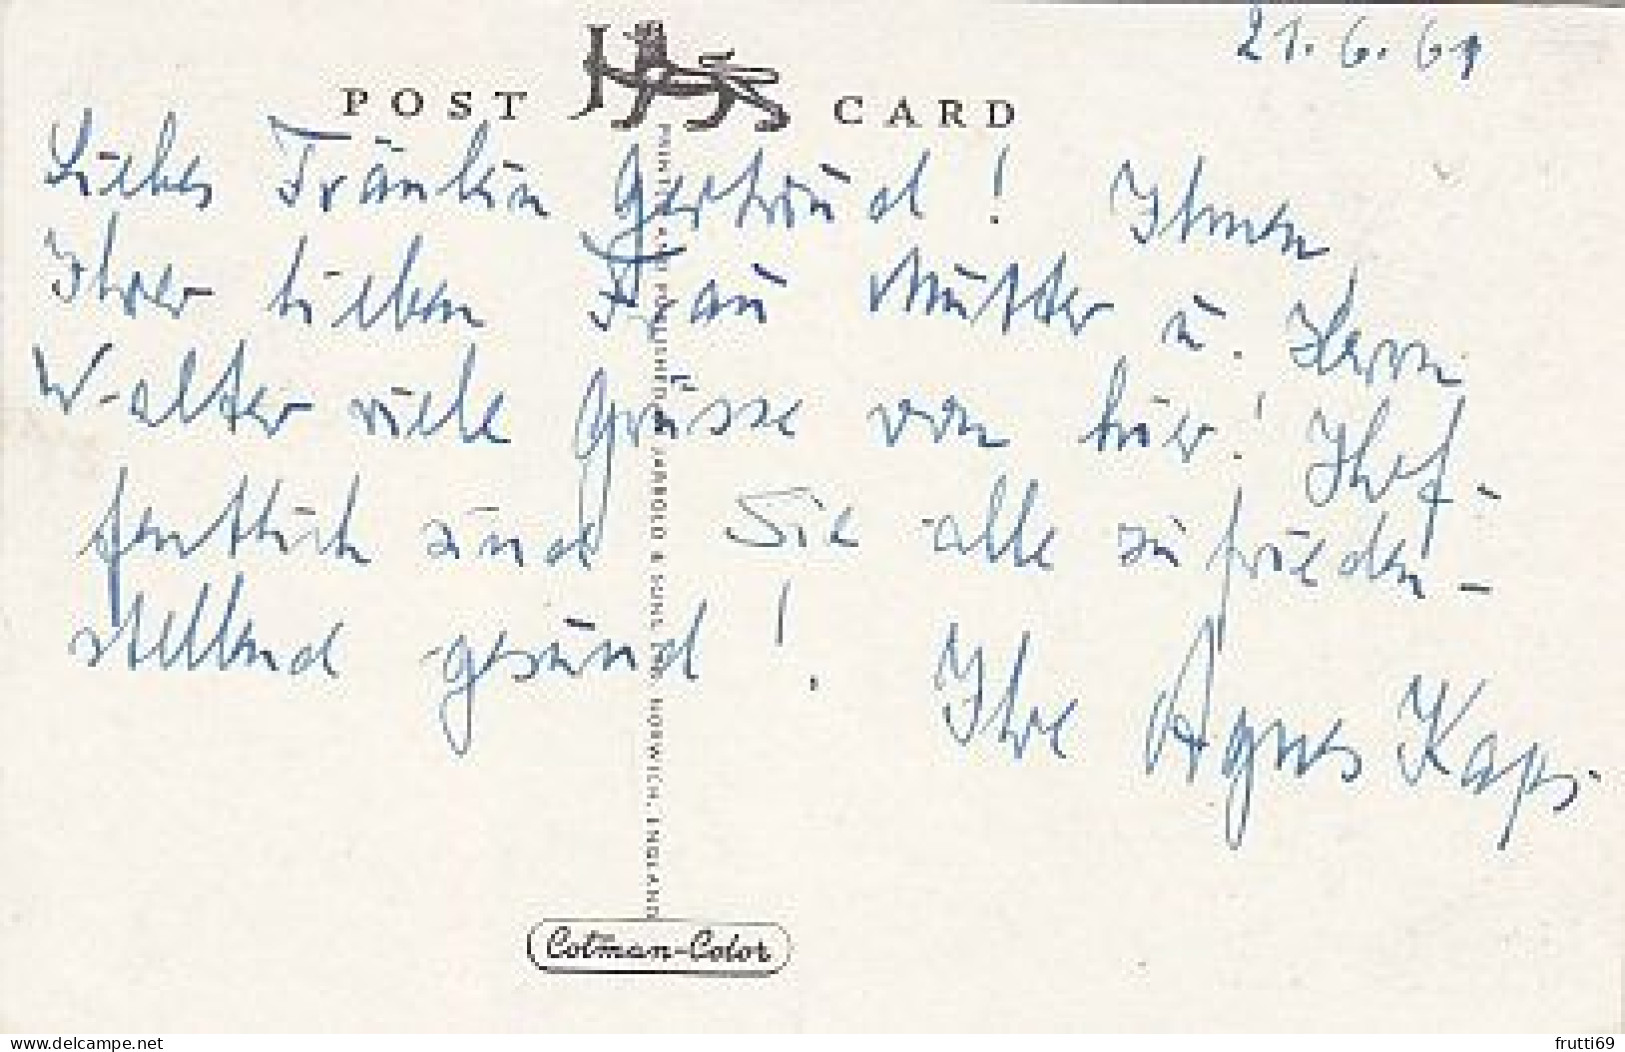 21.6.61
POST CARD
Liebes Fräulein Gertraud! Ihnen
Ihrer lieben Frau Mutter u. Herrn
Walter viele Grüsse von hier! Hof-
fentlich sind Sie alle zufrieden-
stellend gesund!
Ihre Agnes Kaps.
PRINTED AND PUBLISHED BY JARROLD & SONS LTD. NORWICH. ENGLAND
Cotman-Color
www.delcampe.net
frutti69